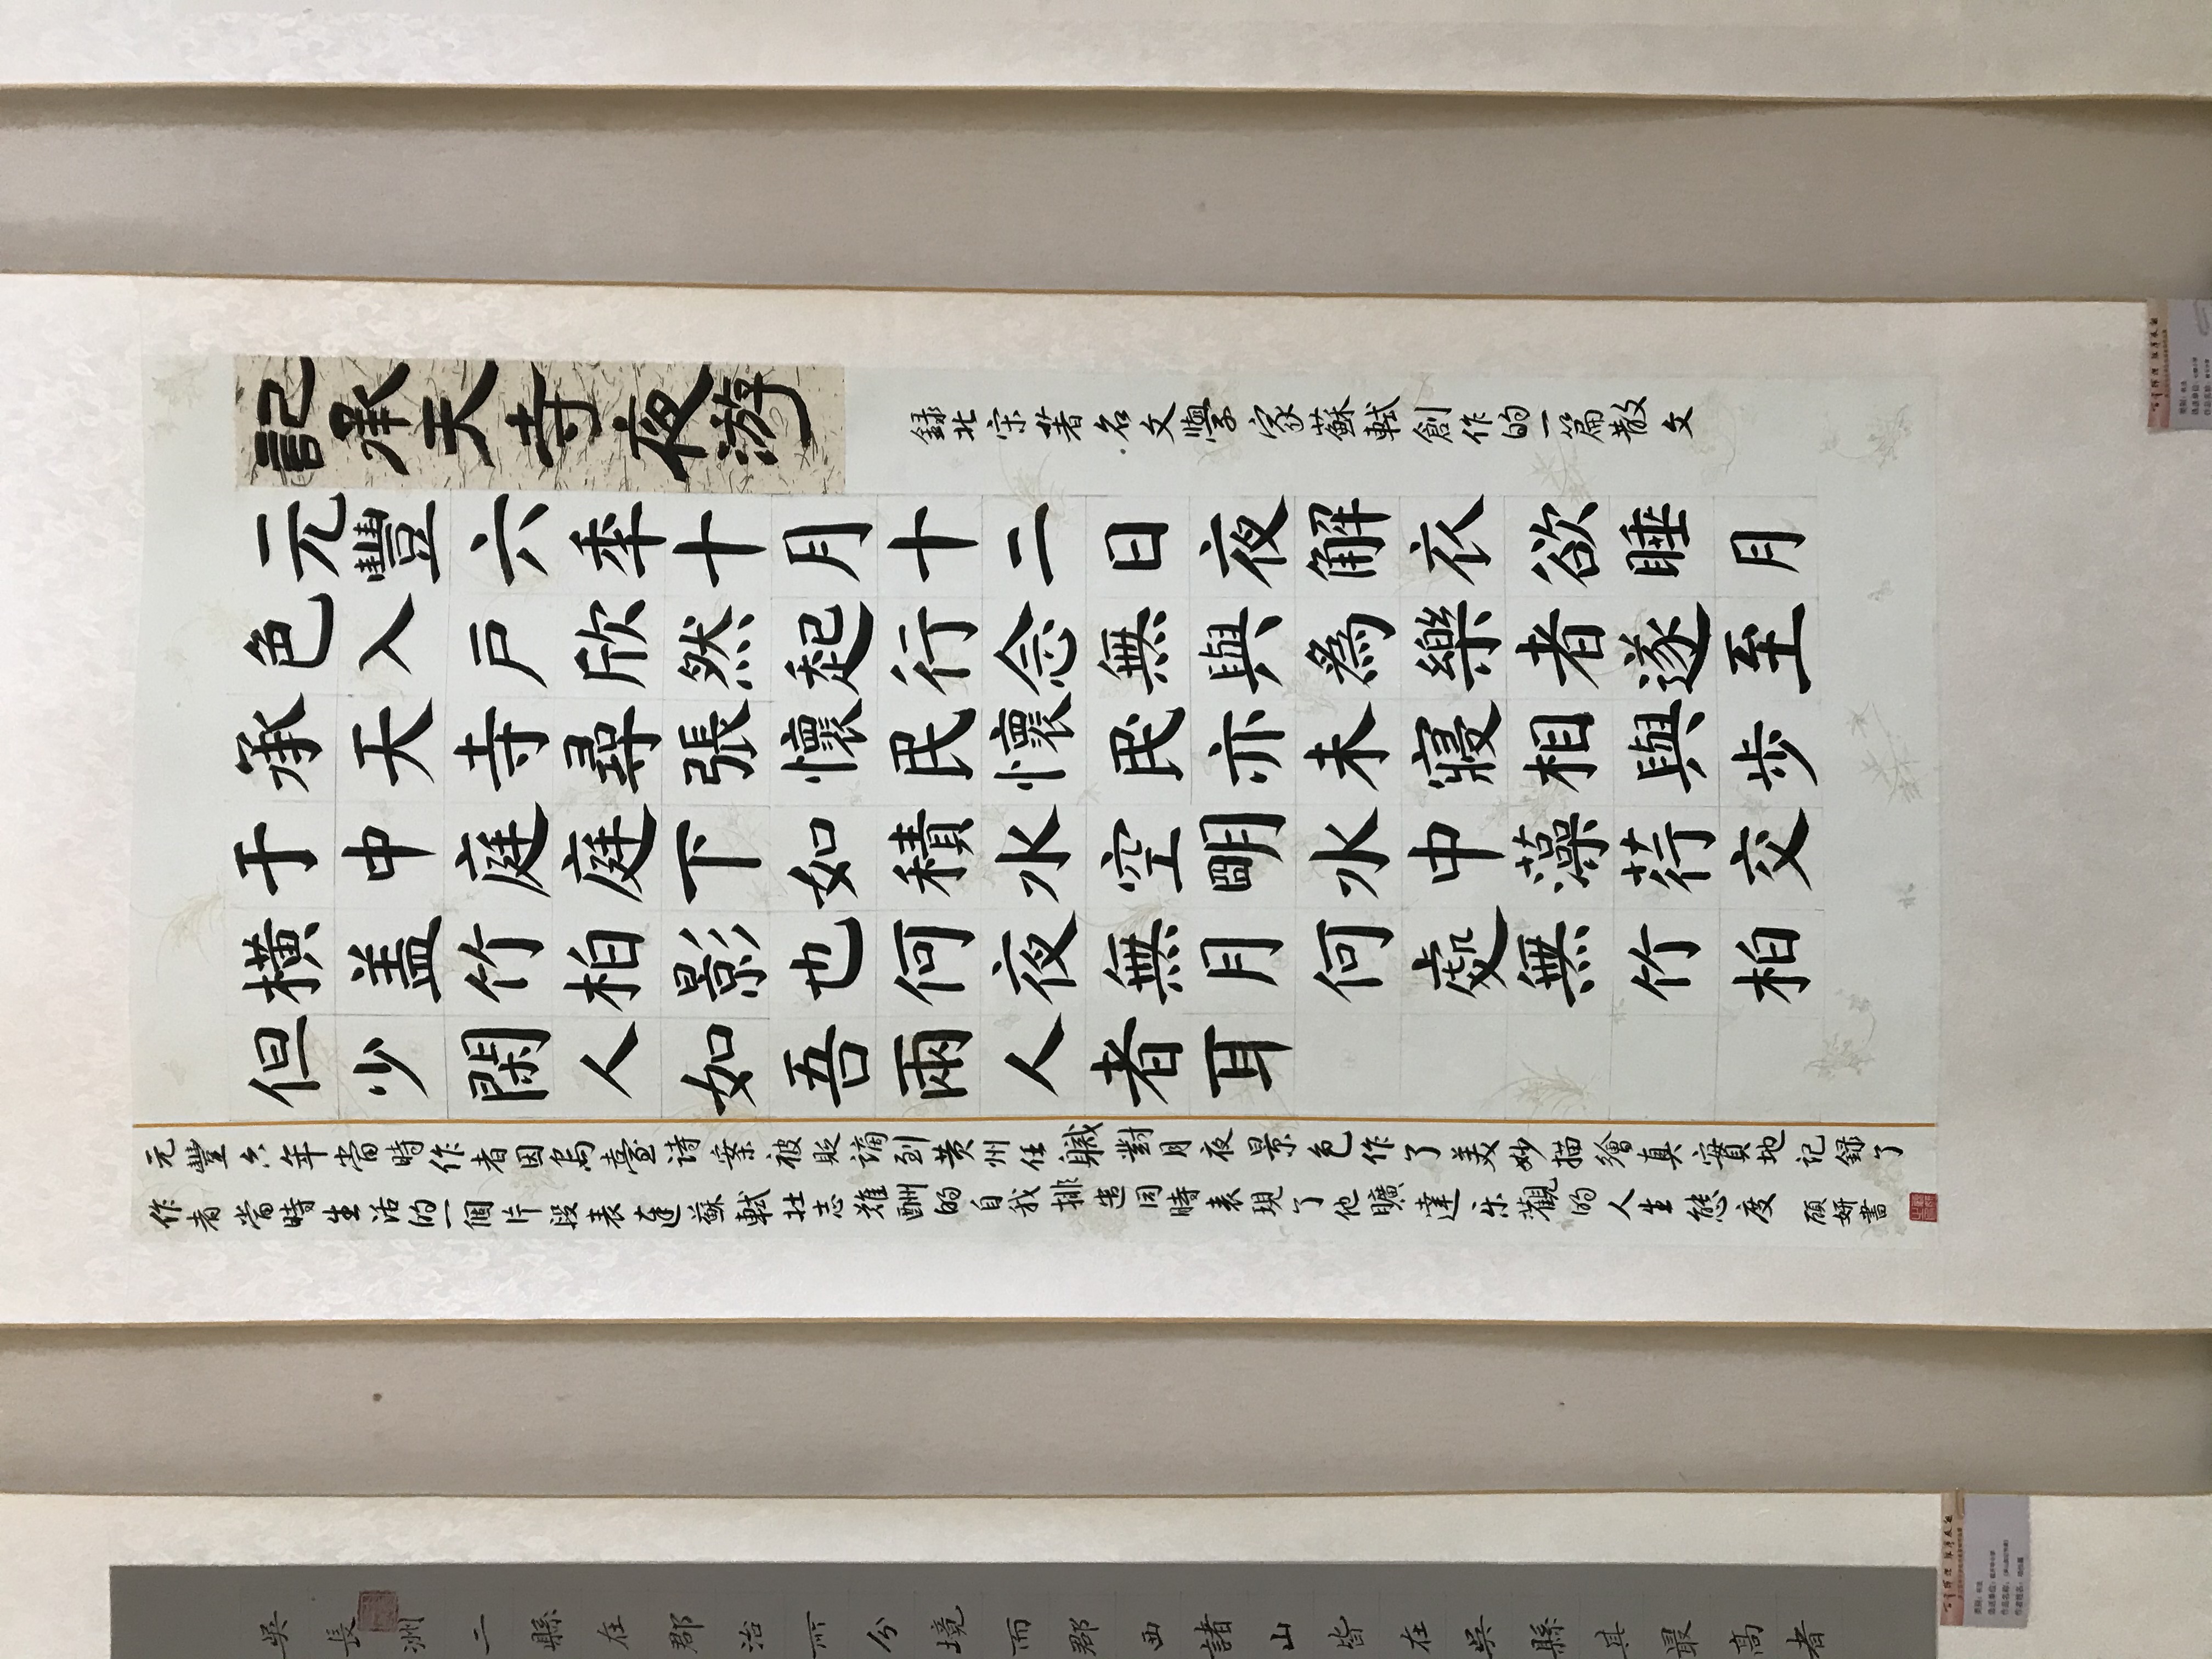 記承天寺夜游
録北宋著名文學家蘇軾創作的一篇散文
元豐六年十月十二日夜解衣欲睡月
色入戶欣然起行念無與為樂者遂至
承天寺尋張懷民懷民亦未寢相與步
于中庭庭下如積水空朙水中藻荇交
橫盖竹柏影也何夜無月何處無竹柏
但少閑人如吾兩人者耳
元豐六年當時作者因烏臺詩案被貶謫到黄州任職對月夜景色作了美妙描繪真實地記録了
作者當時生活的一個片段表達蘇軾壯志難酬的自我排遣同時表現了他曠達乐觀的人生態度 顧妍書
吳長洲二縣在郡治所分境而郡西諸山皆在吳縣其最高者